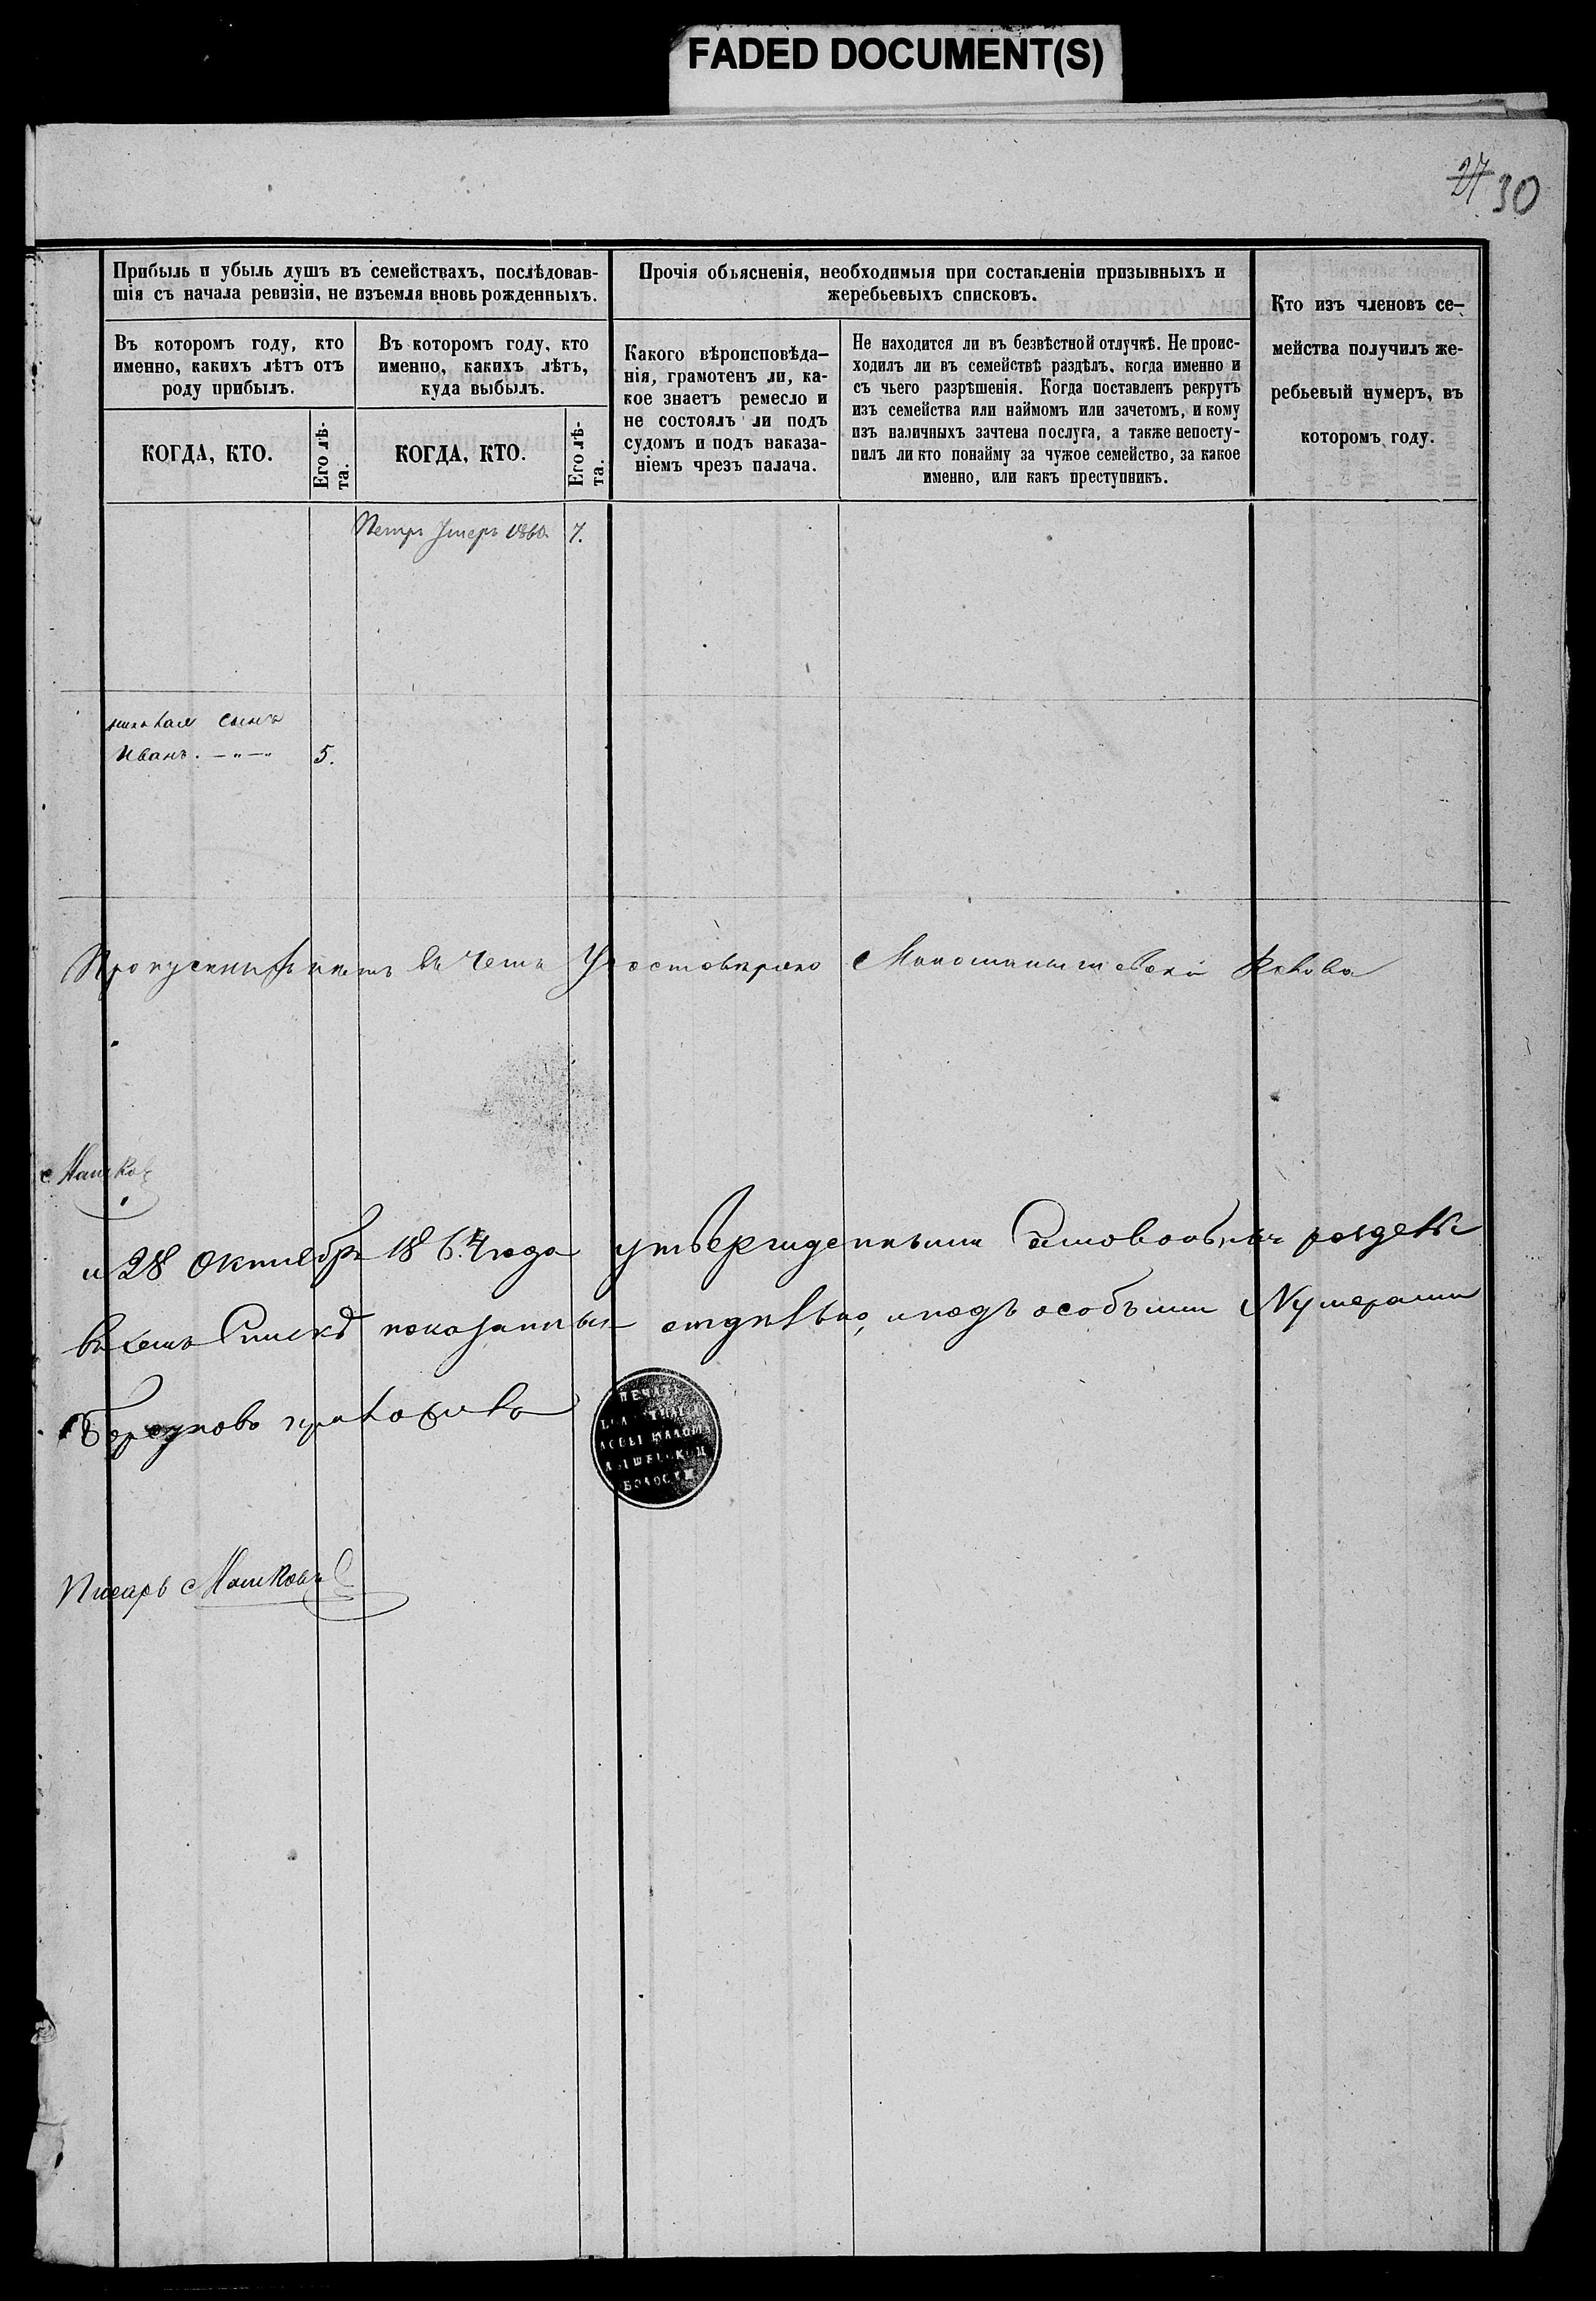 FADED DOCUMENT(S)
27 30
Прибыль и убыль душъ въ семействахъ, послѣдовав-
шія съ начала ревизіи, не изъемля вновь рожденныхъ.
Въ которомъ году, кто
именно, какихъ лѣтъ отъ
роду прибылъ.
КОГДА, КТО.
Его лѣ-
та.
Въ которомъ году, кто
именно, какихъ лѣтъ,
куда выбылъ.
КОГДА, КТО.
Его лѣ-
та.
Прочія объясненія, необходимыя при составленіи призывныхъ и
жеребьевыхъ списковъ.
Какого вѣроисповѣда-
нія, грамотенъ ли, ка-
кое знаетъ ремесло и
не состоялъ ли подъ
судомъ и подъ наказа-
ніемъ чрезъ палача.
Не находится ли въ безвѣстной отлучкѣ. Не проис-
ходилъ ли въ семействѣ раздѣлъ, когда именно и
съ чьего разрѣшенія. Когда поставленъ рекрутъ
изъ семейства или наймомъ или зачетомъ, и кому
изъ наличныхъ зачтена послуга, а также непосту-
пилъ ли кто понайму за чужое семейство, за какое
именно, или какъ преступникъ.
Кто изъ членовъ се-
мейства получилъ же-
ребьевый нумеръ, въ
которомъ году.
Петръ Умеръ 1860. 7.
сынъ
Иванъ. —„—„ 5.
нѣтъ въ чемъ
Машков
и 28 Октября 1864 года утвержденными
въ семъ Спискѣ показанныя отдѣльно, и подъ особыми Нумерами
ПЕЧАТЬ
ВОЛОСТИ
Писарь Машковъ